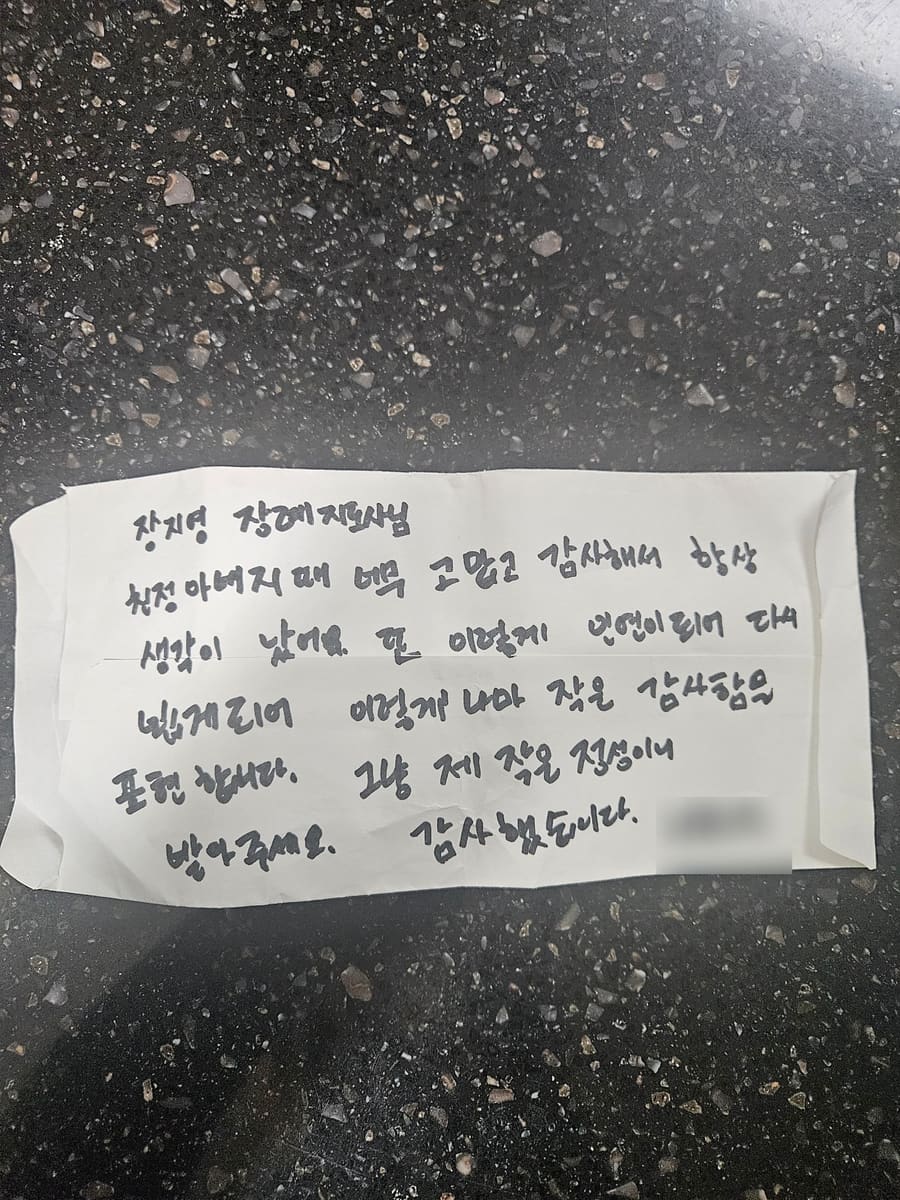 장지영 장례지도사님
친정아버지때 너무 고맙고 감사해서 항상
생각이 났어요. 또 이렇게 인연이되어 다시
뵙게되어 이렇게나마 작은 감사함을
표현합니다. 그냥 제 작은 정성이니
받아주세요. 감사했습니다.